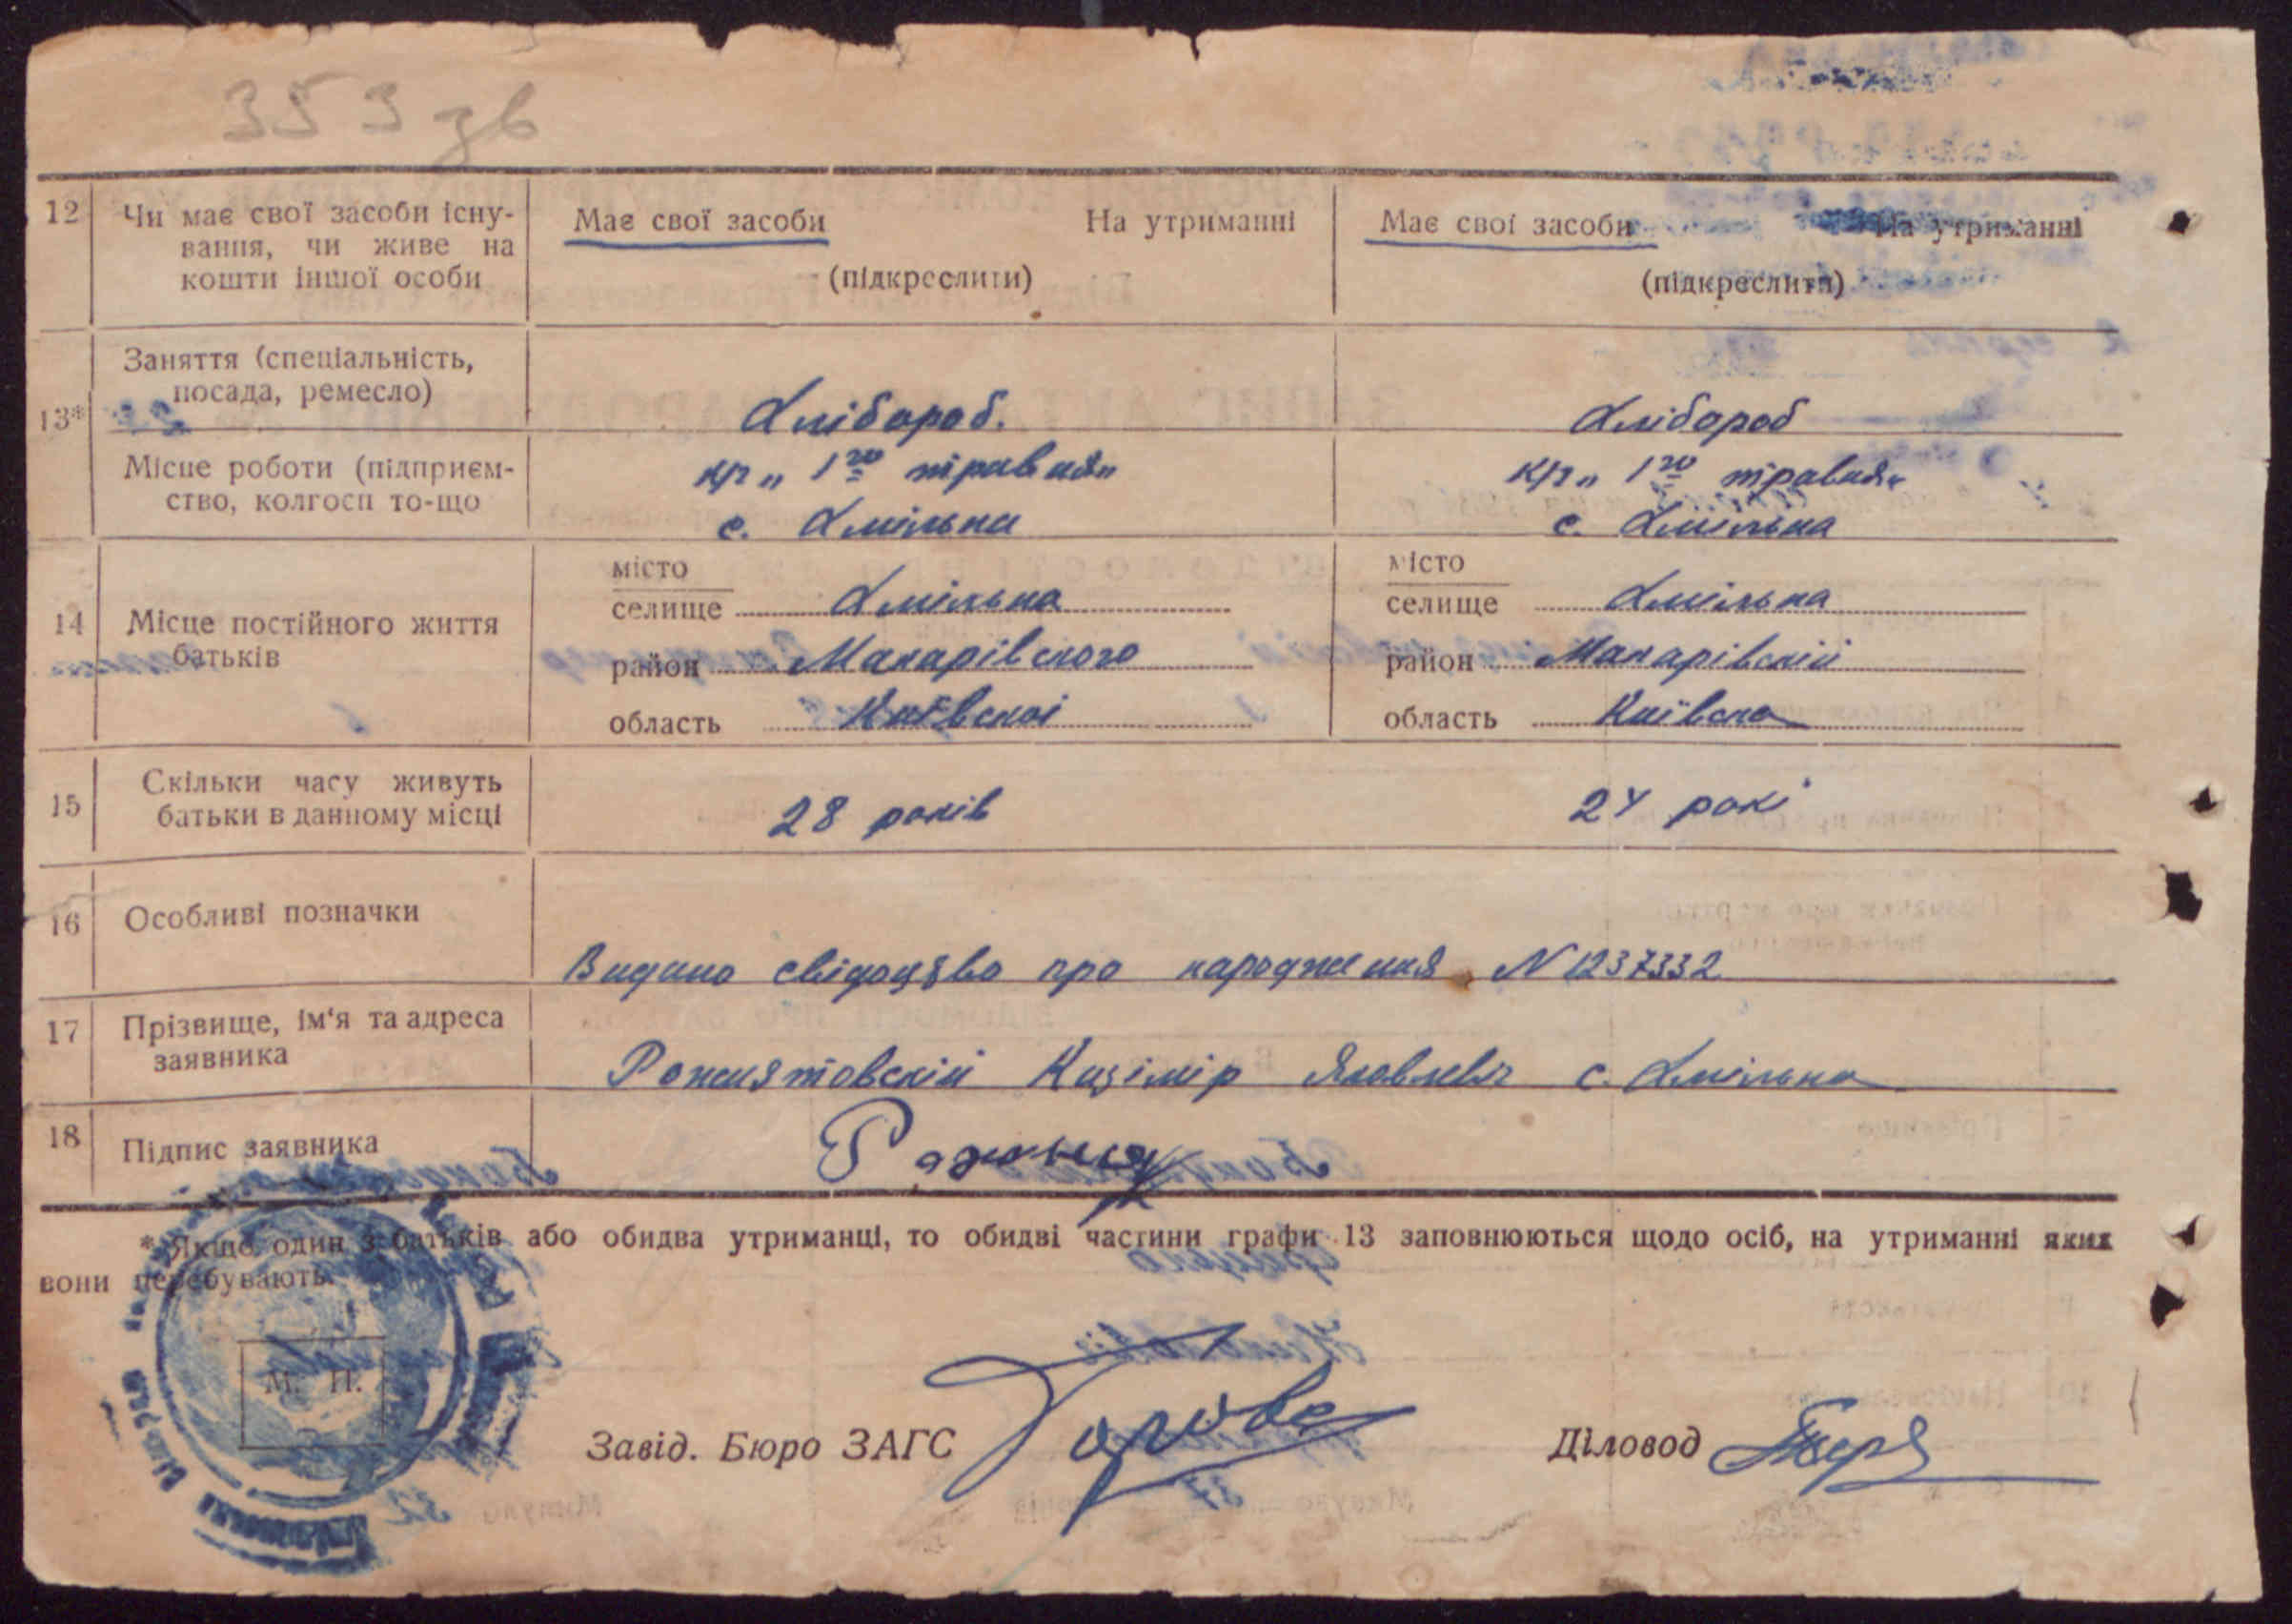 353 зв
12 Чи має свої засоби існу-
вання, чи живе на
кошти іншої особи
Має свої засоби На утриманні
(підкреслити)
Має свої засоби На утриманні
(підкреслити)
13*
Заняття (спеціальність,
посада, ремесло)
Хлібороб.
Хлібороб
Місце роботи (підприєм-
ство, колгосп то-що
к/г „1го травня„
с. Хмільна
к/г „1го травня„
с. Хмільна
14 Місце постійного життя
батьків
місто
селище Хмільна
район Макарівского
область Київскої
місто
селище Хмільна
район Макарівский
область Київска
15 Скільки часу живуть
батьки в данному місці
28 років
24 рокі
16 Особливі позначки
Видано свідоцтво про народження N 1237332
17 Прізвище, ім'я та адреса
заявника
Рожнятовский Казімір Яковлевич с. Хмільна
18 Підпис заявника
* Якщо один з батьків або обидва утриманці, то обидві частини графи 13 заповнюються щодо осіб, на утриманні яких
вони перебувають.
М. П.
Завід. Бюро ЗАГС
Діловод